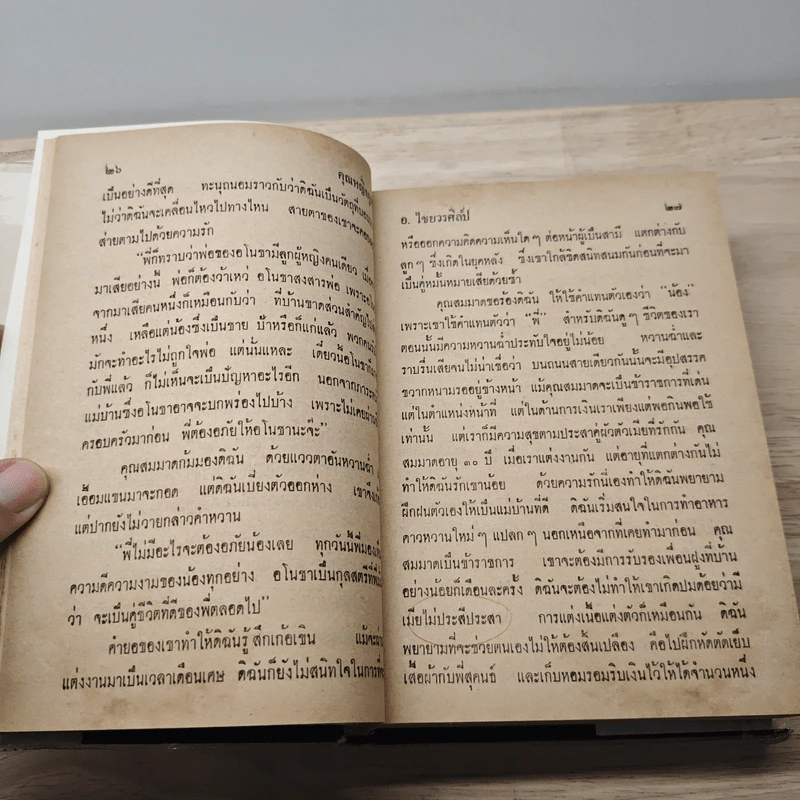 ๒๖
คุณหญิง
เป็นอย่างดีที่สุด ทะนุถนอมราวกับว่าดิฉันเป็นวัตถุที่
ไม่ว่าดิฉันจะเคลื่อนไหวไปทางไหน สายตาของเขาจะคอย
ส่ายตามไปด้วยความรัก
“พี่ก็ทราบว่าพ่อของอโนชามีลูกผู้หญิงคนเดียว เมื่อ
มาเสียอย่างนี้ พ่อก็ต้องว้าเหว่ อโนชาสงสารพ่อ เพราะ
จากมาเสียคนหนึ่งก็เหมือนกับว่า ที่บ้านขาดส่วนสำคัญไป
หนึ่ง เหลือแต่น้องซึ่งเป็นชาย ป้าหรือก็แก่แล้ว พวกคน
มักจะทำอะไรไม่ถูกใจพ่อ แต่นั่นแหละ เดี๋ยวน้อโนชาก็
กับพี่แล้ว ก็ไม่เห็นจะเป็นปัญหาอะไรอีก นอกจากภาระ
แม่บ้านซึ่งอโนชาอาจจะบกพร่องไปบ้าง เพราะไม่เคยผ่าน
ครอบครัวมาก่อน พี่ต้องอภัยให้อโนชานะจ๊ะ”
คุณสมมาดก้มมองดิฉัน ด้วยแววตาอันหวานฉ่ำ
เอื้อมแขนมาจะกอด แต่ดิฉันเบี่ยงตัวออกห่าง เขาจึง
แต่ปากยังไม่วายกล่าวคำหวาน
“พี่ไม่มีอะไรจะต้องอภัยน้องเลย ทุกวันนี้พี่มอง
ความดีความงามของน้องทุกอย่าง อโนชาเป็นกุลสตรีที่พี่
ว่า จะเป็นคู่ชีวิตที่ดีของพี่ตลอดไป”
คำยอของเขาทำให้ดิฉันรู้สึกเก้อเขิน แม้จะ
แต่งงานมาเป็นเวลาเดือนเศษ ดิฉันก็ยังไม่สนิทใจในการที่
อ. ไชยวรศิลป์
๒๗
หรือออกความคิดความเห็นใดๆ ต่อหน้าผู้เป็นสามี แตกต่างกับ
ลูกๆ ซึ่งเกิดในยุคหลัง ซึ่งเขาใกล้ชิดสนิทสนมกันก่อนที่จะมา
เป็นคู่หมั้นหมายเสียด้วยซ้ำ
คุณสมมาดขอร้องดิฉัน ให้ใช้คำแทนตัวเองว่า “น้อง”
เพราะเขาใช้คำแทนตัวว่า “พี่” สำหรับดิฉันดูๆ ชีวิตของเรา
ตอนนั้นมีความหวานฉ่ำประทับใจอยู่ไม่น้อย หวานฉ่ำและ
ราบรื่นเสียจนไม่น่าเชื่อว่า บนถนนสายเดียวกันนั้นจะมีอุปสรรค
ขวากหนามรออยู่ข้างหน้า แม้คุณสมมาดจะเป็นข้าราชการที่เด่น
แต่ในตำแหน่งหน้าที่ แต่ในด้านการเงินเราเพียงแต่พอกินพอใช้
เท่านั้น แต่เราก็มีความสุขตามประสาคู่ผัวตัวเมียที่รักกัน คุณ
สมมาดอายุ ๓๐ ปี เมื่อเราแต่งงานกัน แต่อายุที่แตกต่างกันไม่
ทำให้ดิฉันรักเขาน้อย ด้วยความรักนี่เองทำให้ดิฉันพยายาม
ฝึกฝนตัวเองให้เป็นแม่บ้านที่ดี ดิฉันเริ่มสนใจในการทำอาหาร
คาวหวานใหม่ๆ แปลกๆ นอกเหนือจากที่เคยทำมาก่อน คุณ
สมมาดเป็นข้าราชการ เขาจะต้องมีการรับรองเพื่อนฝูงที่บ้าน
อย่างน้อยก็เดือนละครั้ง ดิฉันจะต้องไม่ทำให้เขาเกิดปมด้อยว่ามี
เมียไม่ประสีประสา การแต่งเนื้อแต่งตัวก็เหมือนกัน ดิฉัน
พยายามที่จะช่วยตนเองไม่ให้ต้องสิ้นเปลือง คือไปฝึกหัดตัดเย็บ
เสื้อผ้ากับพี่สุคนธ์ และเก็บหอมรอมริบเงินไว้ให้ได้จำนวนหนึ่ง